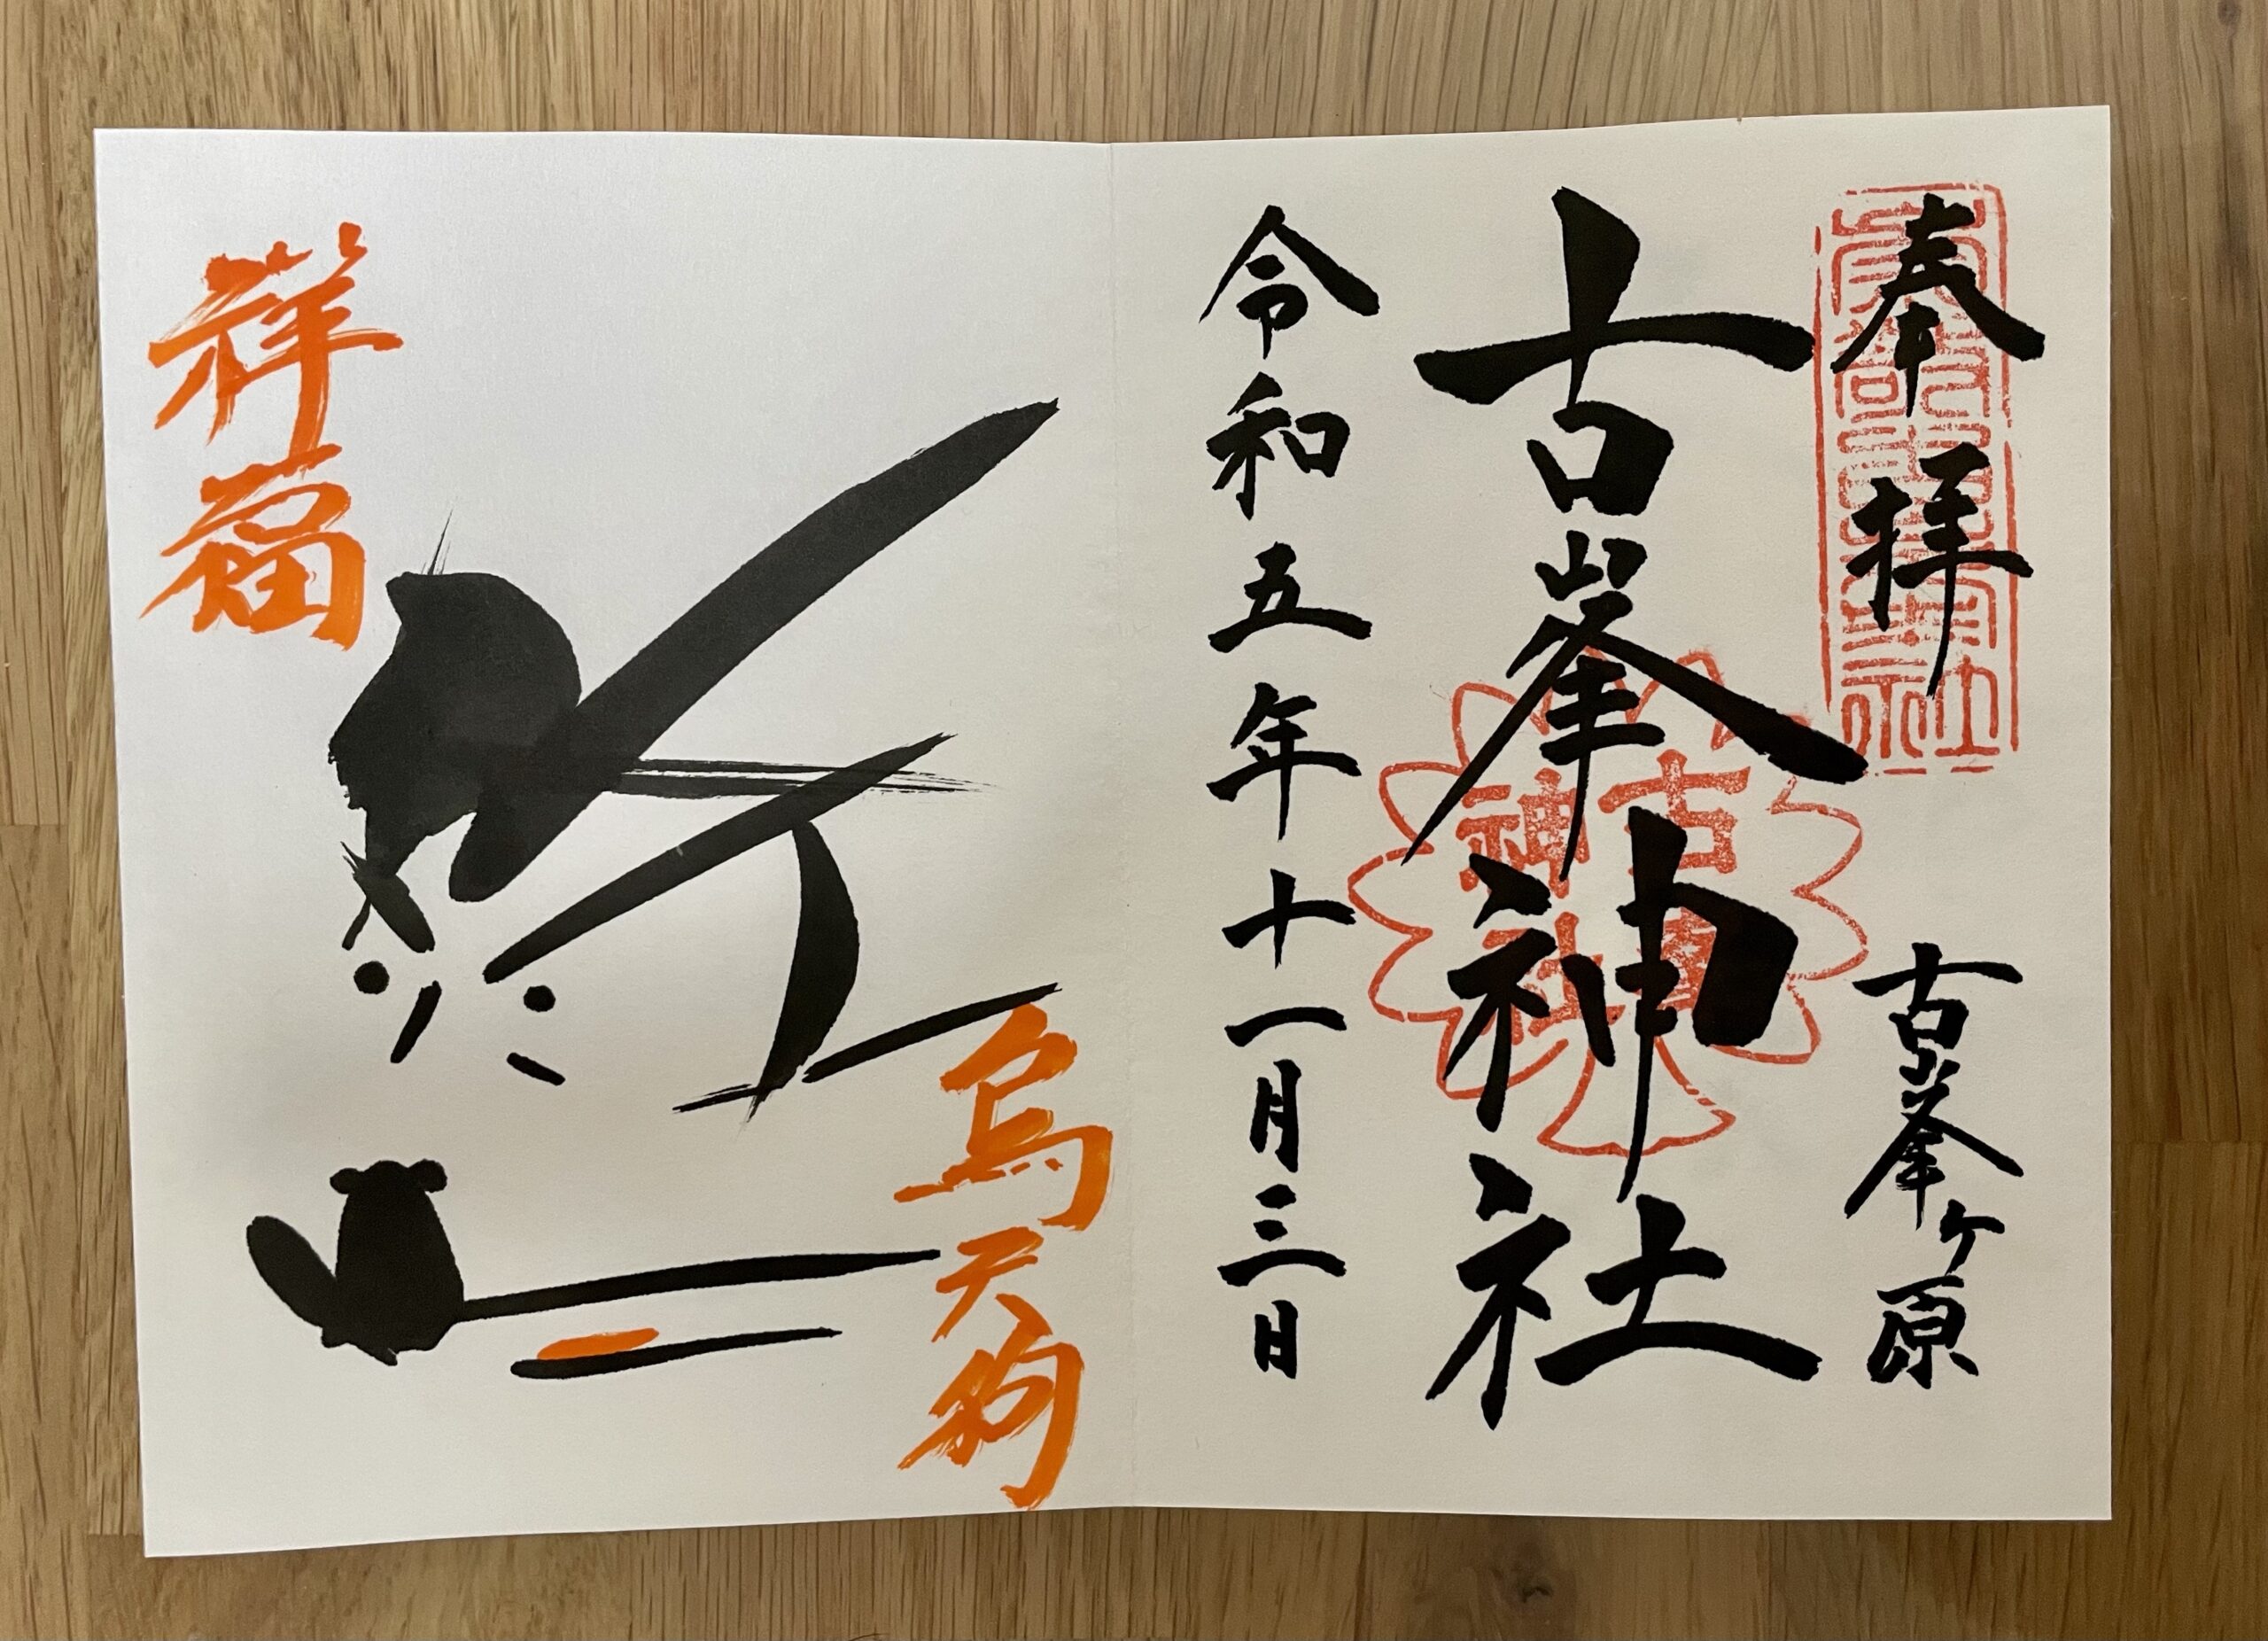 奉拝
古峯ヶ原
古峯神社
古峯
神社
令和五年十一月三日
烏天狗
祥福